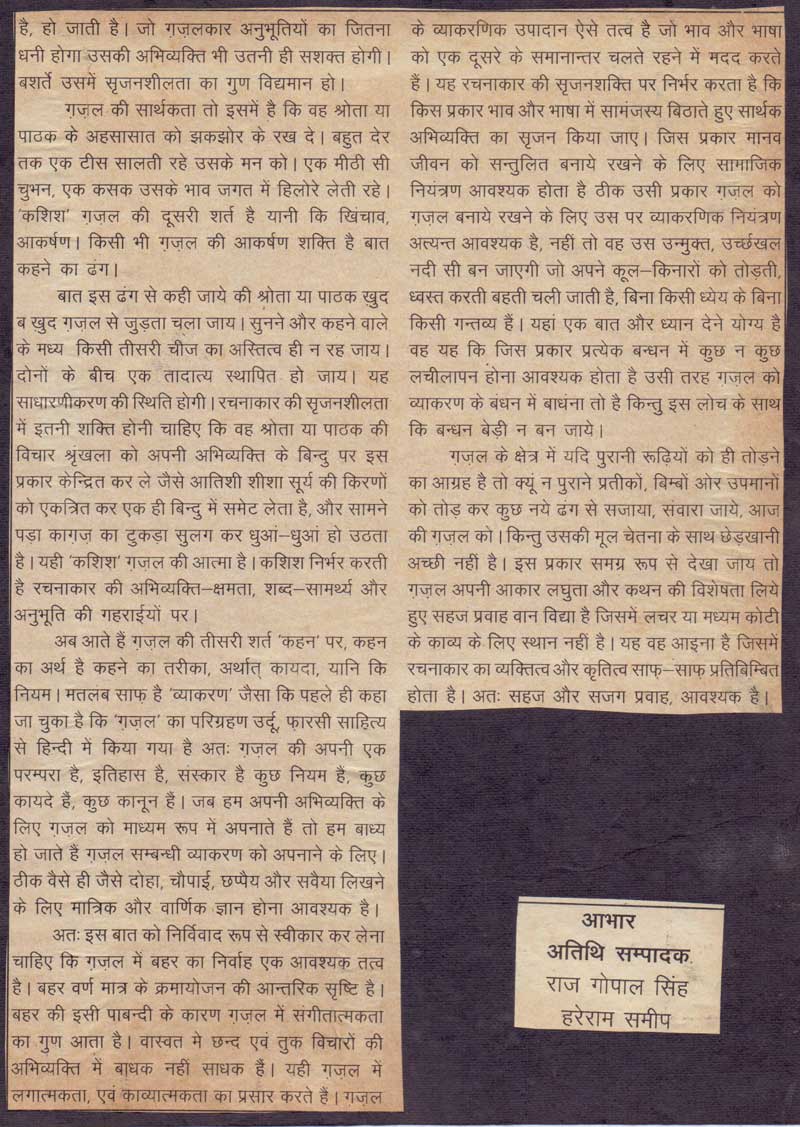 है, हो जाती है। जो ग़ज़लकार अनुभूतियों का जितना
धनी होगा उसकी अभिव्यक्ति भी उतनी ही सशक्त होगी।
बशर्ते उसमें सृजनशीलता का गुण विद्यमान हो।
ग़ज़ल की सार्थकता तो इसमें है कि वह श्रोता या
पाठक के अहसासात को झकझोर के रख दे। बहुत देर
तक एक टीस सालती रहे उसके मन को। एक मीठी सी
चुभन, एक कसक उसके भाव जगत में हिलोरे लेती रहे।
'कशिश' ग़ज़ल की दूसरी शर्त है यानी कि खिंचाव,
आकर्षण। किसी भी ग़ज़ल की आकर्षण शक्ति है बात
कहने का ढंग।
बात इस ढंग से कही जाये की श्रोता या पाठक ख़ुद
ब खुद ग़ज़ल से जुड़ता चला जाय। सुनने और कहने वाले
के मध्य किसी तीसरी चीज का अस्तित्व ही न रह जाय।
दोनों के बीच एक तादात्य स्थापित हो जाय। यह
साधारणीकरण की स्थिति होगी। रचनाकार की सृजनशीलता
में इतनी शक्ति होनी चाहिए कि वह श्रोता या पाठक की
विचार श्रृंखला को अपनी अभिव्यक्ति के बिन्दु पर इस
प्रकार केन्द्रित कर ले जैसे आतिशी शीशा सूर्य की किरणों
को एकत्रित कर एक ही बिन्दु में समेट लेता है, और सामने
पड़ा काग़ज़ का टुकड़ा सुलग कर धुआं–धुआं हो उठता
है। यही 'कशिश' ग़ज़ल की आत्मा है। कशिश निर्भर करती
है रचनाकार की अभिव्यक्ति–क्षमता, शब्द–सामर्थ्य और
अनुभूति की गहराईयों पर।
अब आते हैं ग़ज़ल की तीसरी शर्त 'कहन' पर, कहन
का अर्थ है कहने का तरीका, अर्थात् कायदा, यानि कि
नियम। मतलब साफ़ है 'व्याकरण' जैसा कि पहले ही कहा
जा चुका है कि 'ग़ज़ल' का परिग्रहण उर्दू, फ़ारसी साहित्य
से हिन्दी में किया गया है अतः ग़ज़ल की अपनी एक
परम्परा है, इतिहास है, संस्कार है कुछ नियम हैं, कुछ
कायदे हैं, कुछ कानून हैं। जब हम अपनी अभिव्यक्ति के
लिए ग़ज़ल को माध्यम रूप में अपनाते हैं तो हम बाध्य
हो जाते हैं ग़ज़ल सम्बन्धी व्याकरण को अपनाने के लिए।
ठीक वैसे ही जैसे दोहा, चौपाई, छप्पैय और सवैया लिखने
के लिए मात्रिक और वार्णिक ज्ञान होना आवश्यक है।
अतः इस बात को निर्विवाद रूप से स्वीकार कर लेना
चाहिए कि ग़ज़ल में बहर का निर्वाह एक आवश्यक तत्व
है। बहर वर्ण मात्र के क्रमायोजन की आन्तरिक सृष्टि है।
बहर की इसी पाबन्दी के कारण ग़ज़ल में संगीतात्मकता
का गुण आता है। वास्वत मे छन्द एवं तुक विचारों की
अभिव्यक्ति में बाधक नहीं साधक हैं। यही ग़ज़ल में
लगात्मकता, एवं काव्यात्मकता का प्रसार करते हैं। ग़ज़ल
के व्याकरणिक उपादान ऐसे तत्व है जो भाव और भाषा
को एक दूसरे के समानान्तर चलते रहने में मदद करते
हैं। यह रचनाकार की सृजनशक्ति पर निर्भर करता है कि
किस प्रकार भाव और भाषा में सामंजस्य बिठाते हुए सार्थक
अभिव्यक्ति का सृजन किया जाए। जिस प्रकार मानव
जीवन को सन्तुलित बनाये रखने के लिए सामाजिक
नियंत्रण आवश्यक होता है ठीक उसी प्रकार ग़ज़ल को
ग़ज़ल बनाये रखने के लिए उस पर व्याकरणिक नियंत्रण
अत्यन्त आवश्यक है, नहीं तो वह उस उन्मुक्त, उर्च्छखल
नदी सी बन जाएगी जो अपने कूल–किनारों को तोड़ती,
ध्वस्त करती बहती चली जाती है, बिना किसी ध्येय के बिना
किसी गन्तव्य हैं। यहां एक बात और ध्यान देने योग्य है
वह यह कि जिस प्रकार प्रत्येक बन्धन में कुछ न कुछ
लचीलापन होना आवश्यक होता है उसी तरह ग़ज़ल को
व्याकरण के बंधन में बाधंना तो है किन्तु इस लोच के साथ
कि बन्धन बेड़ी न बन जाये।
ग़ज़ल के क्षेत्र में यदि पुरानी रूढ़ियों को ही तोड़ने
का आग्रह है तो क्यूं न पुराने प्रतीकों, बिम्बों ओर उपमानों
को तोड़ कर कुछ नये ढंग से सजाया, संवारा जाये, आज
की ग़ज़ल को। किन्तु उसकी मूल चेतना के साथ छेड़खानी
अच्छी नहीं है। इस प्रकार समग्र रूप से देखा जाय तो
ग़ज़ल अपनी आकार लघुता और कथन की विशेषता लिये
हुए सहज प्रवाह वान विद्या है जिसमें लचर या मध्यम कोटी
के काव्य के लिए स्थान नहीं है। यह वह आइना है जिसमें
रचनाकार का व्यक्तित्व और कृतित्व साफ़–साफ़ प्रतिबिम्बित
होता है। अतः सहज और सजग प्रवाह, आवश्यक है।
आभार
अतिथि सम्पादक
राज गोपाल सिंह
हरेराम समीप